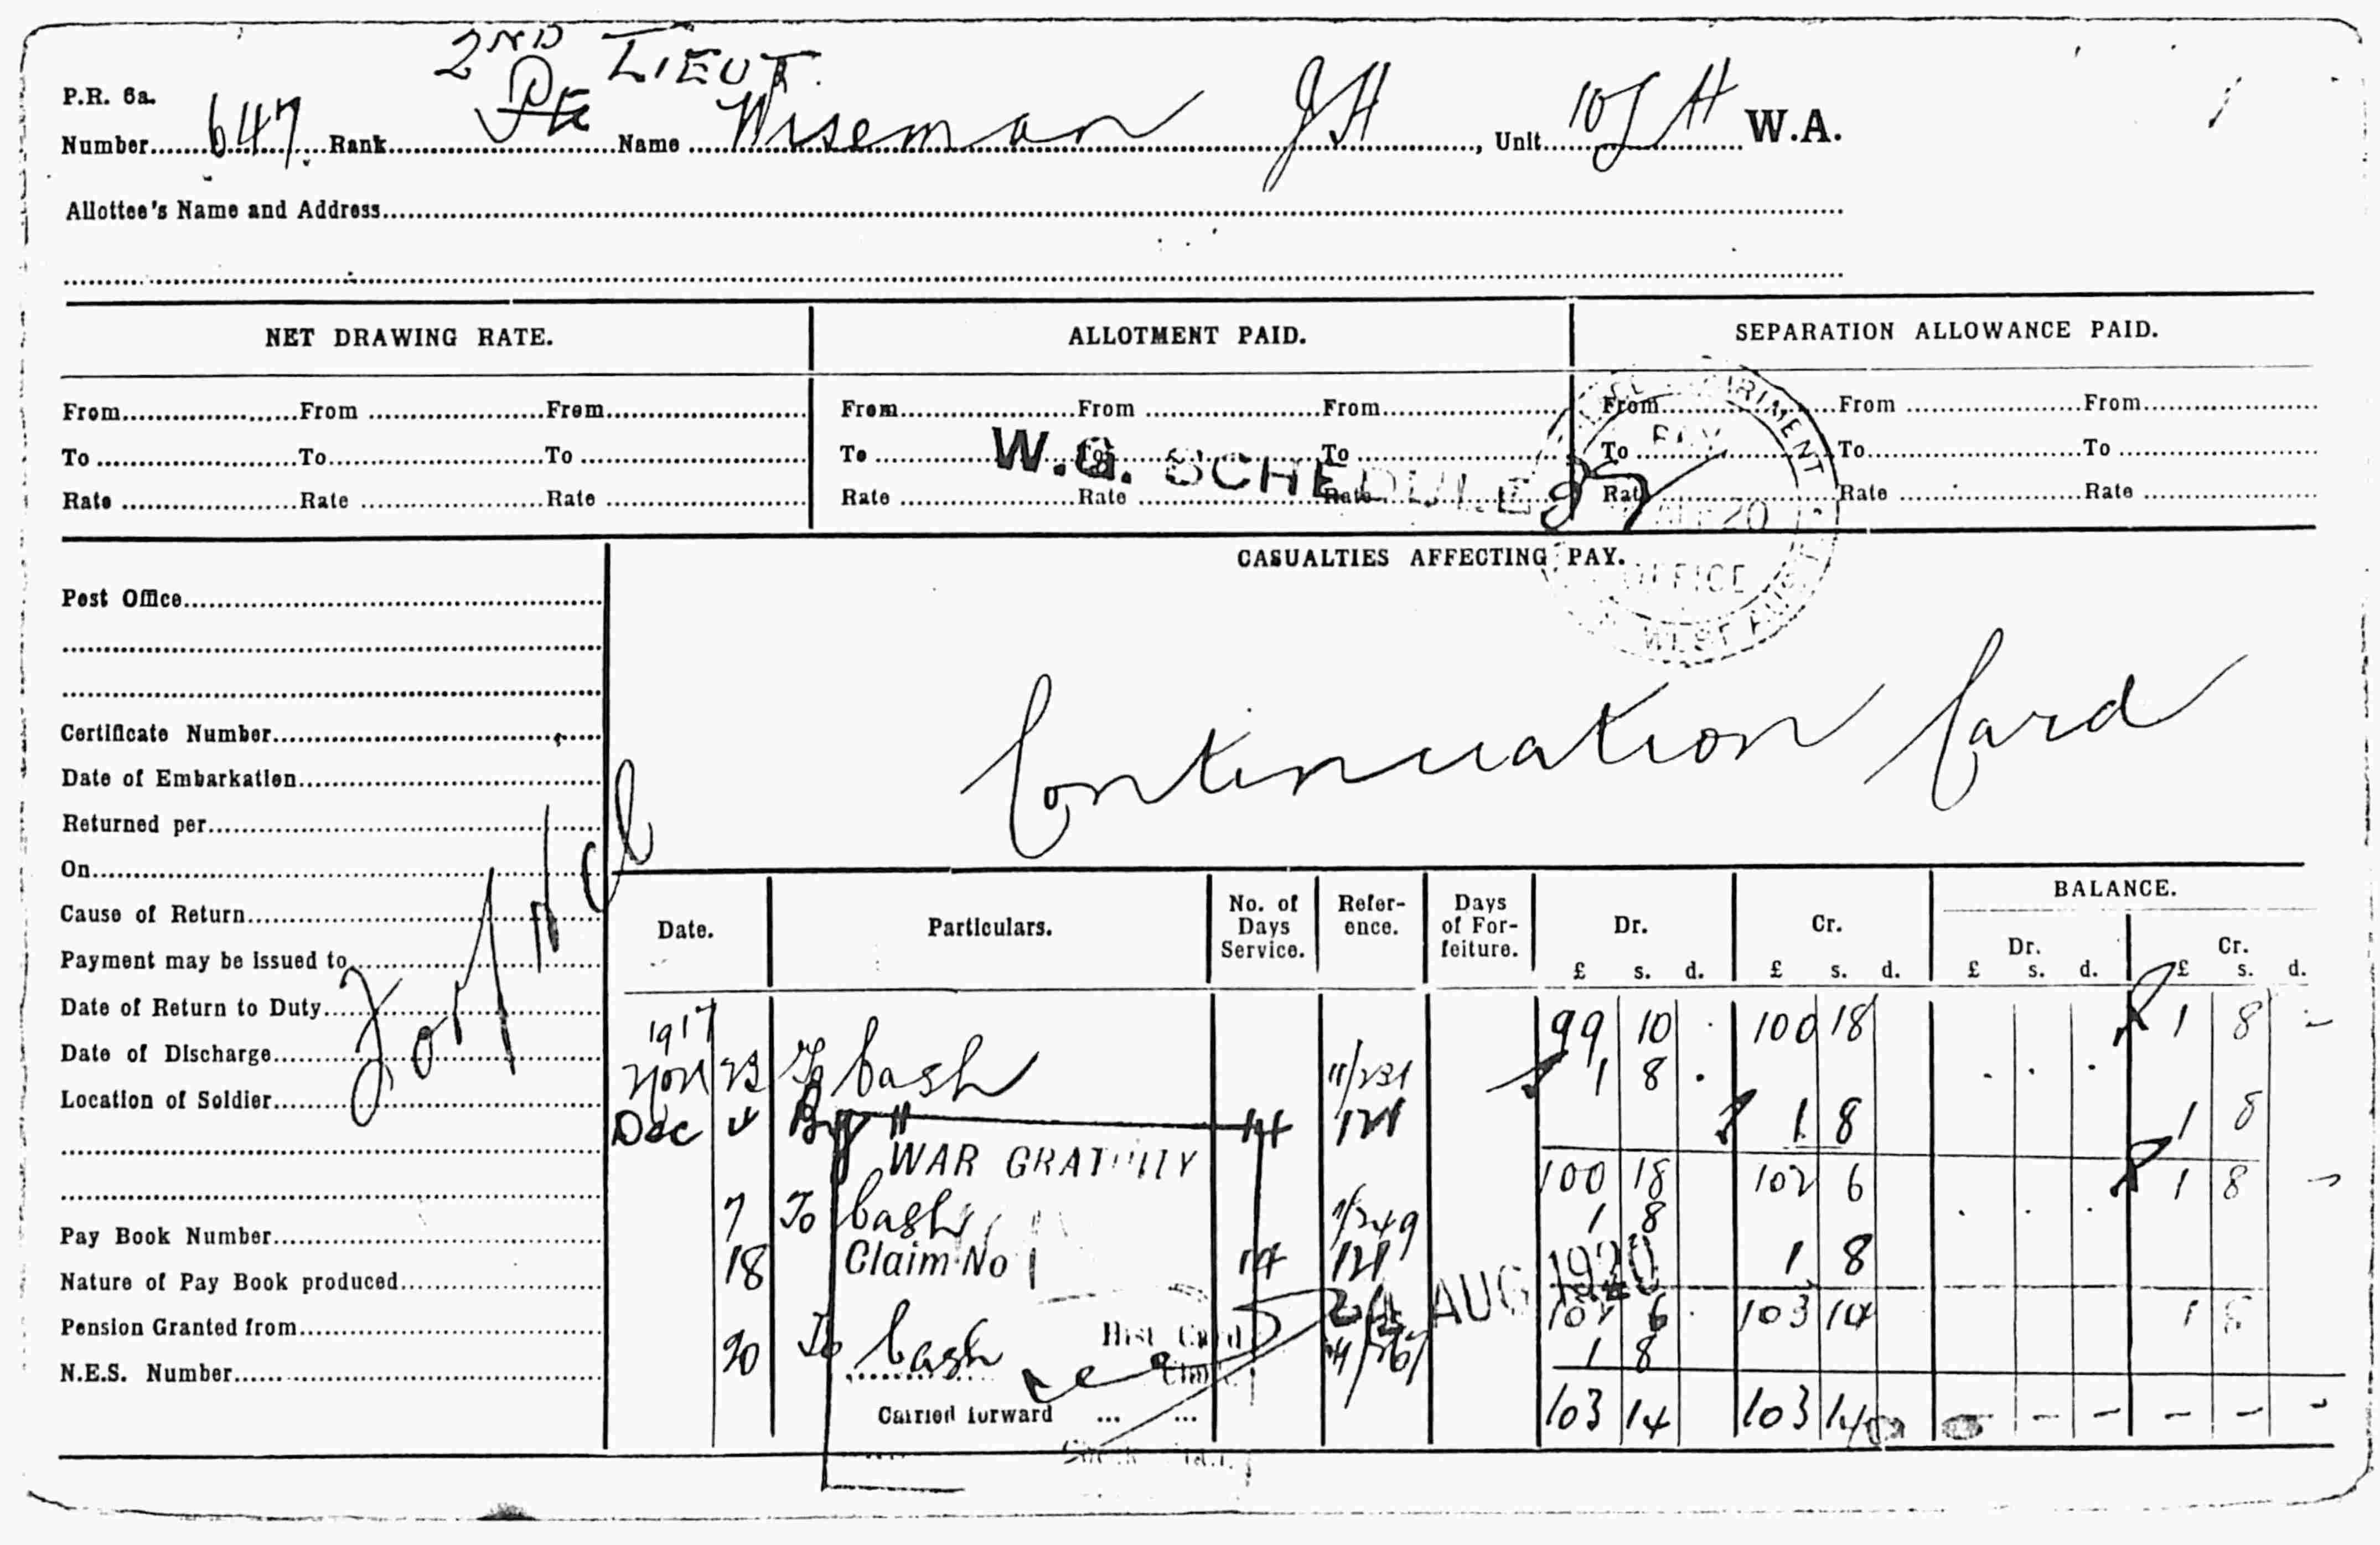 2ND LIEUT.
P.R. 6a.
Number 647 Rank Pte Name Wiseman J H, Unit 10 L H W.A.
Allottee's Name and Address
NET DRAWING RATE. ALLOTMENT PAID. SEPARATION ALLOWANCE PAID.
From From From From From From From From From
To To To To To To To To To
W.G. SCHEDULE 97
Rate Rate Rate Rate Rate Rate Rate Rate Rate
PAY
OFFICE
CASUALTIES AFFECTING PAY.
Post Office
Continuation Card
Certificate Number
Date of Embarkation
Returned per
On
Cause of Return
Payment may be issued to
Date of Return to Duty
Date of Discharge
Location of Soldier
Pay Book Number
Nature of Pay Book produced
Pension Granted from
N.E.S. Number
Date. Particulars. No. of Days Service. Reference. Days of Forfeiture. Dr. Cr. BALANCE.
Dr. Cr.
£ s. d. £ s. d. £ s. d. £ s. d.
1917 99 10 100 18 1 8 -
Nov 23 To Cash 11/231 1 8
Dec 4 By " 14 121 1 8 1 8
WAR GRATUITY
100 18 102 6 1 8 -
7 To Cash 1/249 1 8
18 Claim No 14 121 1 8
AUG 1920
102 6 103 14 1 8
20 To Cash 1 8
Hist. Card
Carried forward ... ... 103 14 103 14 - - - - -